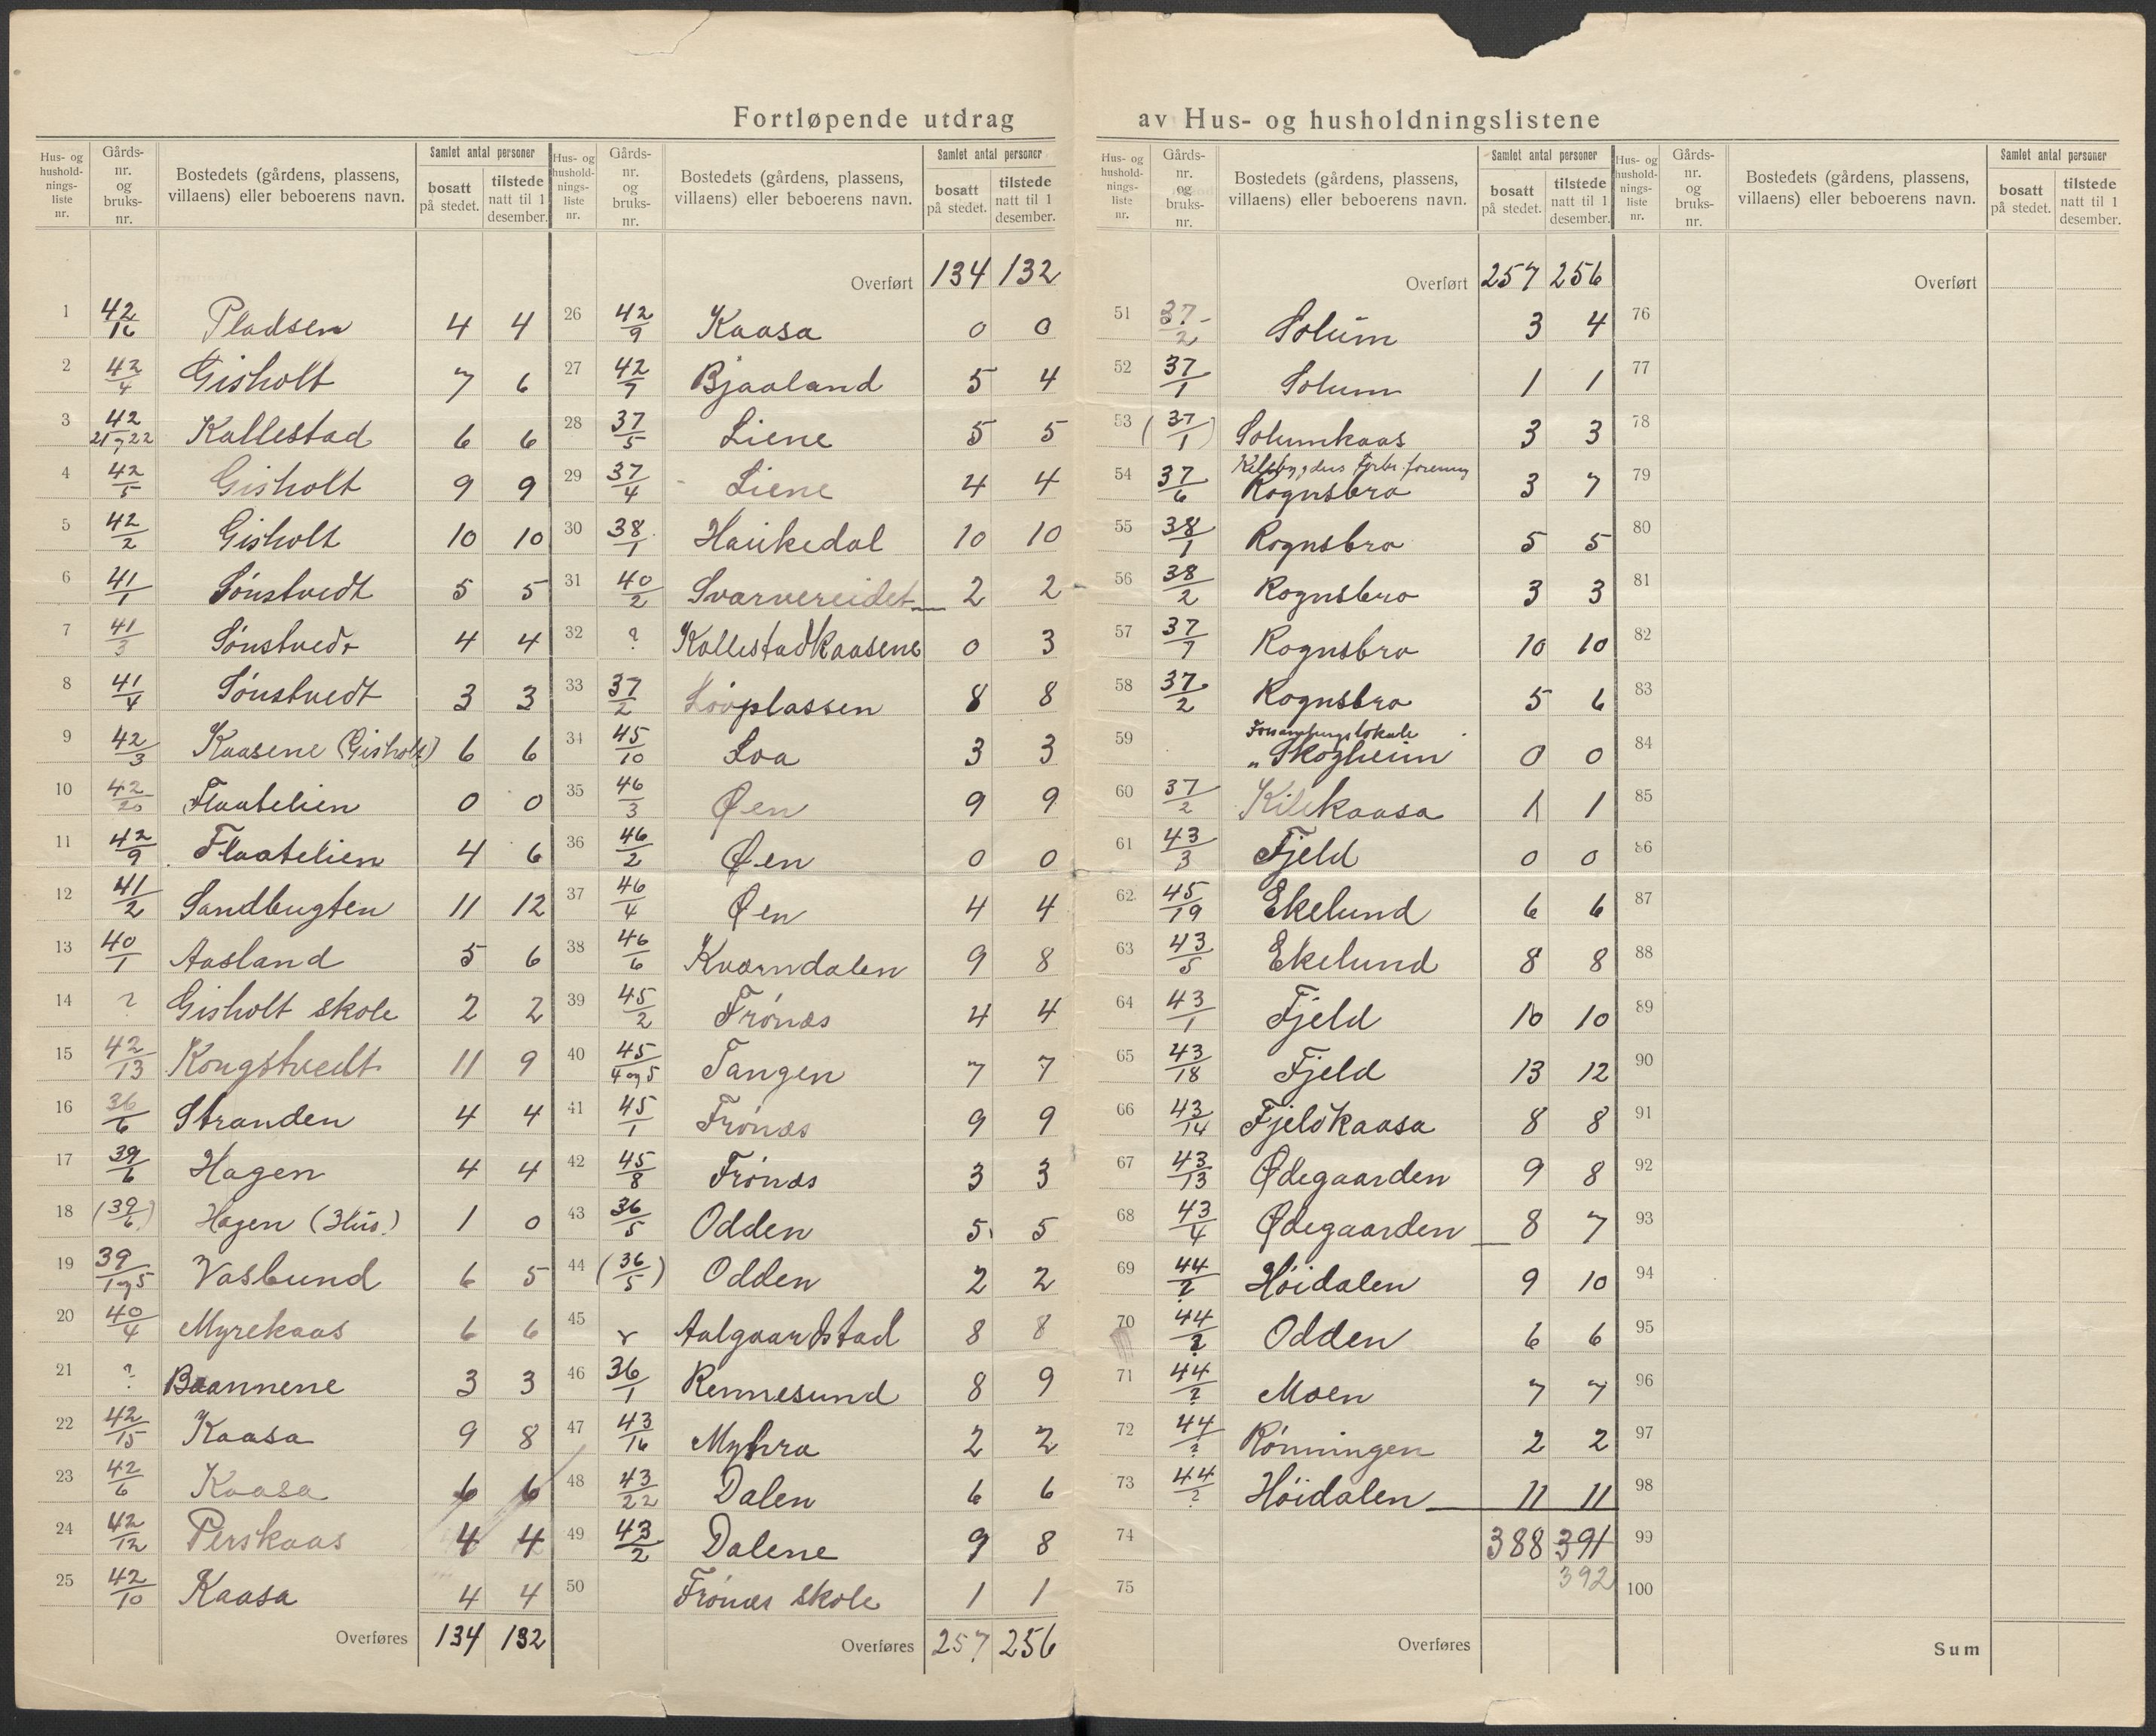 Fortløpende utdrag av Hus- og husholdningslistene
Hus- og husholdnings-liste nr. | Gårds-nr. og bruks-nr. | Bostedets (gårdens, plassens, villaens) eller beboerens navn. | Samlet antal personer | bosatt på stedet. | tilstede natt til 1 desember.
1 42/16 Pladsen 4 4
2 42/4 Gisholt 7 6
3 42/21 og 22 Kallestad 6 6
4 42/5 Gisholt 9 9
5 42/2 Gisholt 10 10
6 41/1 Sønstvedt 5 5
7 41/3 Sønstvedt 4 4
8 41/4 Sønstvedt 3 3
9 42/3 Kaasene (Gisholt) 6 6
10 42/20 Flaatelien 0 0
11 42/9 Flaatelien 4 6
12 41/2 Sandbugten 11 12
13 40/1 Aasland 5 6
14 ? Gisholt skole 2 2
15 42/13 Kongstvedt 11 9
16 36/6 Stranden 4 4
17 39/6 Hagen 4 4
18 (39/6) Hagen (3 Hus.) 1 0
19 39/1 og 5 Vasbund 6 5
20 40/4 Myrekaas 6 6
21 ? Baannene 3 3
22 42/15 Kaasa 9 8
23 42/6 Kaasa 6 6
24 42/12 Perskaas 4 4
25 42/10 Kaasa 4 4
Overføres 134 132
Hus- og husholdnings-liste nr. | Gårds-nr. og bruks-nr. | Bostedets (gårdens, plassens, villaens) eller beboerens navn. | Samlet antal personer | bosatt på stedet. | tilstede natt til 1 desember.
Overført 134 132
26 42/9 Kaasa 0 0
27 42/7 Bjaaland 5 4
28 37/5 Liene 5 5
29 37/4 Liene 4 4
30 38/1 Haukedal 10 10
31 40/2 Svarvereidet 2 2
32 ? Kallestadkaasene 0 3
33 37/2 Lovplassen 8 8
34 45/10 Loa 3 3
35 46/3 Øen 9 9
36 46/2 Øen 0 0
37 46/4 Øen 4 4
38 46/6 Kværndalen 9 8
39 45/2 Frønæs 4 4
40 45/4 og 5 Tangen 7 7
41 45/1 Frønæs 9 9
42 45/8 Frønæs 3 3
43 36/5 Odden 5 5
44 (36/5) Odden 2 2
45 Aalgaardstad 8 8
46 36/1 Rennesund 8 9
47 43/16 Myhra 2 2
48 43/22 Dalen 6 6
49 43/2 Dalene 9 8
50 Frønæs skole 1 1
Overføres 257 256
Hus- og husholdnings-liste nr. | Gårds-nr. og bruks-nr. | Bostedets (gårdens, plassens, villaens) eller beboerens navn. | Samlet antal personer | bosatt på stedet. | tilstede natt til 1 desember.
Overført 257 256
51 37/2 Solum 3 4
52 37/1 Solum 1 1
53 (37/1) Solumkaas 3 3
54 37/6 Rognsbro 3 7
55 38/1 Rognsbro 5 5
56 38/2 Rognsbro 3 3
57 37/7 Rognsbro 10 10
58 37/2 Rognsbro 5 6
Forsamlingslokale
59 "Skogheim 0 0
60 37/2 Kilekaasa 1 1
61 43/3 Fjeld 0 0
62 45/19 Ekelund 6 6
63 43/5 Ekelund 8 8
64 43/1 Fjeld 10 10
65 43/18 Fjeld 13 12
66 43/14 Fjeldkaasa 8 8
67 43/13 Ødegaarden 9 8
68 43/4 Ødegaarden 8 7
69 44/? Høidalen 9 10
70 44/? Odden 6 6
71 44/? Moen 7 7
72 44/? Rønningen 2 2
73 44/? Høidalen 11 11
74 388 391
75 392
Overføres
Hus- og husholdnings-liste nr. | Gårds-nr. og bruks-nr. | Bostedets (gårdens, plassens, villaens) eller beboerens navn. | Samlet antal personer | bosatt på stedet. | tilstede natt til 1 desember.
Overført
76
77
78
79
80
81
82
83
84
85
86
87
88
89
90
91
92
93
94
95
96
97
98
99
100
Sum